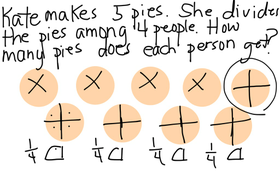 Kate makes 5 pies. She divides
the pies among 4 people. How
many pies does each person get?
1/4 1/4 1/4 1/4